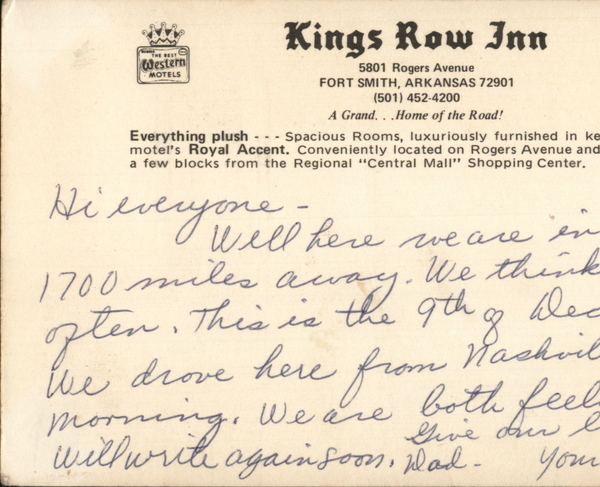 THE BEST
Western
MOTELS
Kings Row Inn
5801 Rogers Avenue
FORT SMITH, ARKANSAS 72901
(501) 452-4200
A Grand. . .Home of the Road!
Everything plush - - - Spacious Rooms, luxuriously furnished in ke
motel's Royal Accent. Conveniently located on Rogers Avenue and
a few blocks from the Regional "Central Mall" Shopping Center.
Hi everyone -
Well here we are in
1700 miles away. We think
often. This is the 9th of Dec
We drove here from Nashvil
morning. We are both feel
Give our l
Will write again soon. Dad - Your